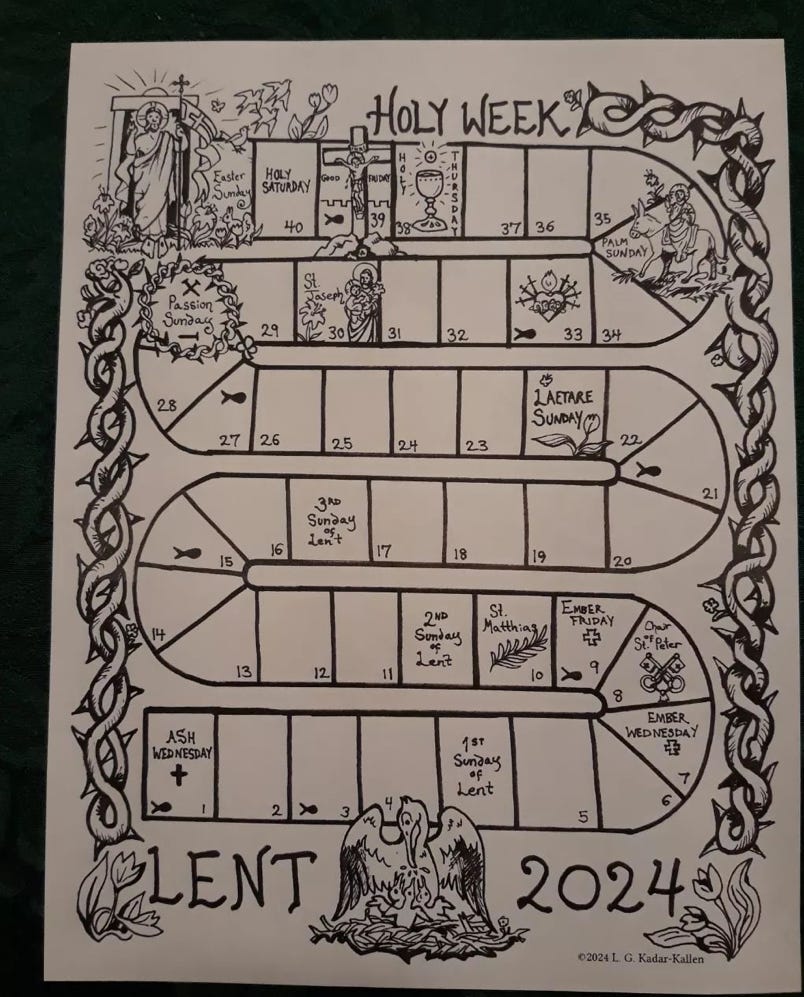 HOLY WEEK
Easter
Sunday
HOLY
SATURDAY
40
GOOD FRIDAY
39
HOLY THURSDAY
38
37
36
35
PALM
SUNDAY
Passion
Sunday
29
St.
Joseph
30
31
32
33
34
28
27
26
25
24
23
LAETARE
SUNDAY
22
21
15
16
3RD
Sunday
of
Lent
17
18
19
20
14
13
12
11
2ND
Sunday
of
Lent
St.
Matthias
10
EMBER
FRIDAY
9
Chair
of
St. Peter
8
EMBER
WEDNESDAY
7
ASH
WEDNESDAY
1
2
3
4
1ST
Sunday
of
Lent
5
6
LENT 2024
©2024 L. G. Kadar-Kallen